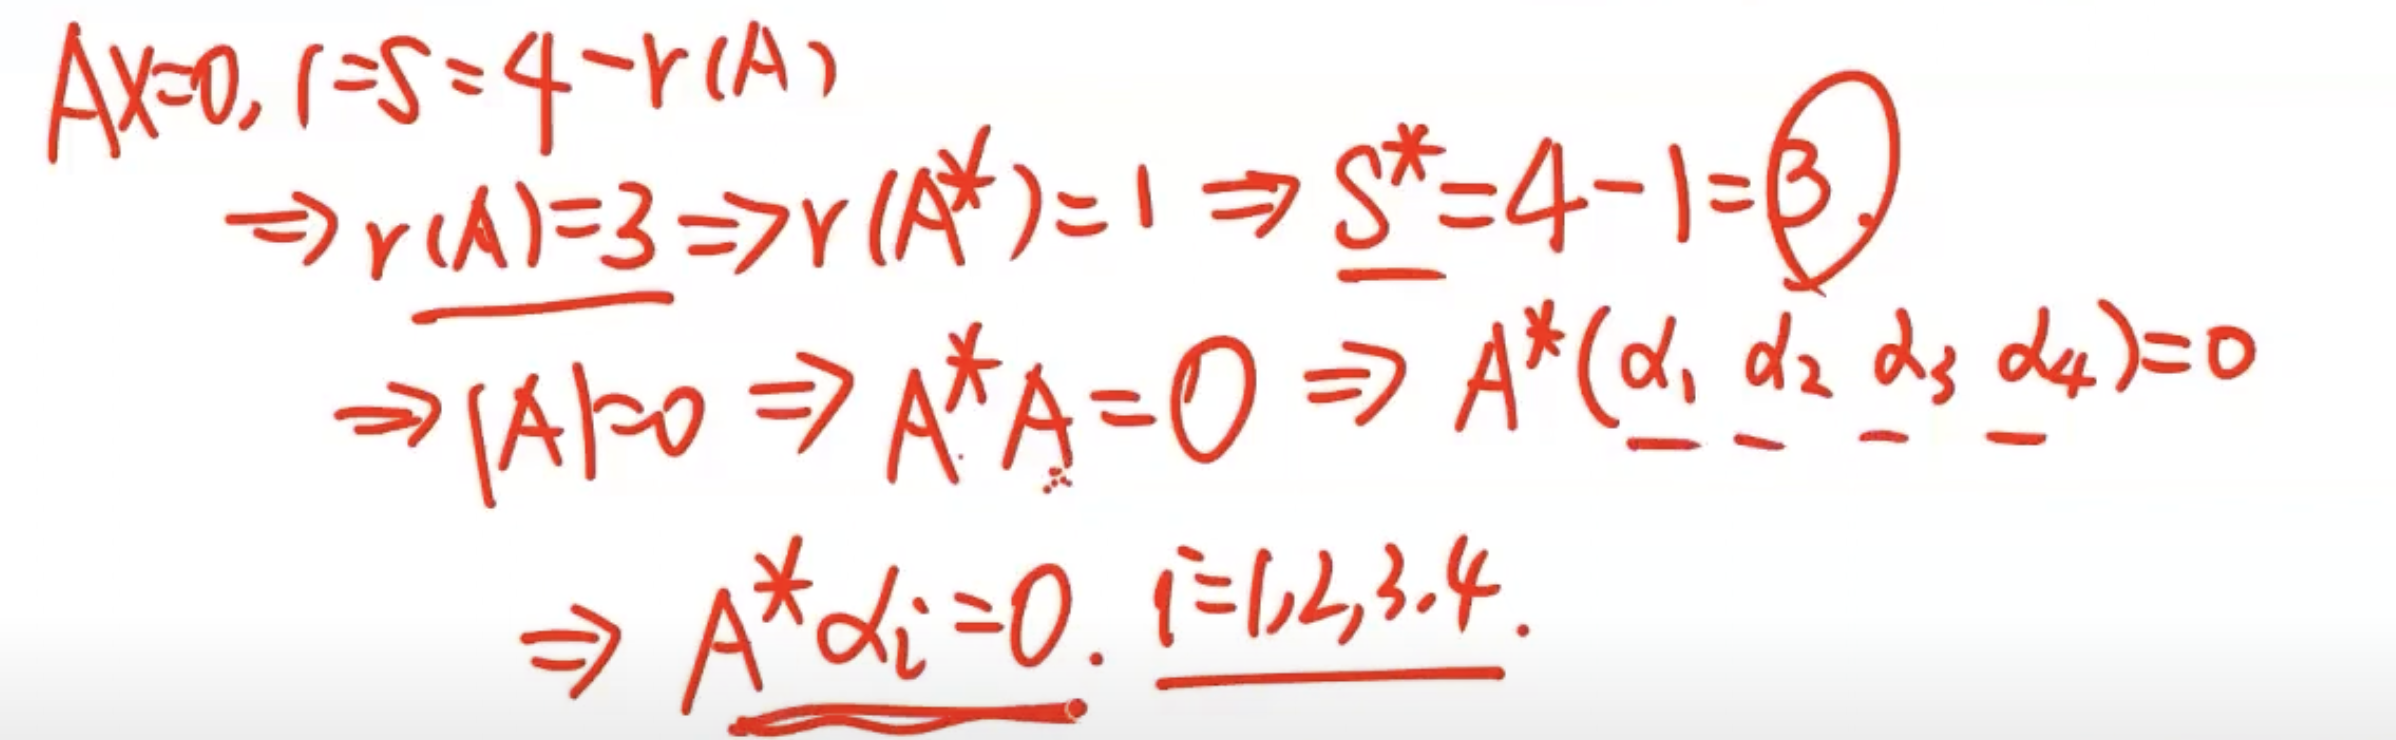 AX=0, 1=S=4-r(A)
⇒r(A)=3⇒r(A*)=1⇒S*=4-1=3.
⇒|A|=0⇒A*A=0⇒A*(α₁ α₂ α₃ α₄)=0
⇒A*αᵢ=0. i=1,2,3.4.